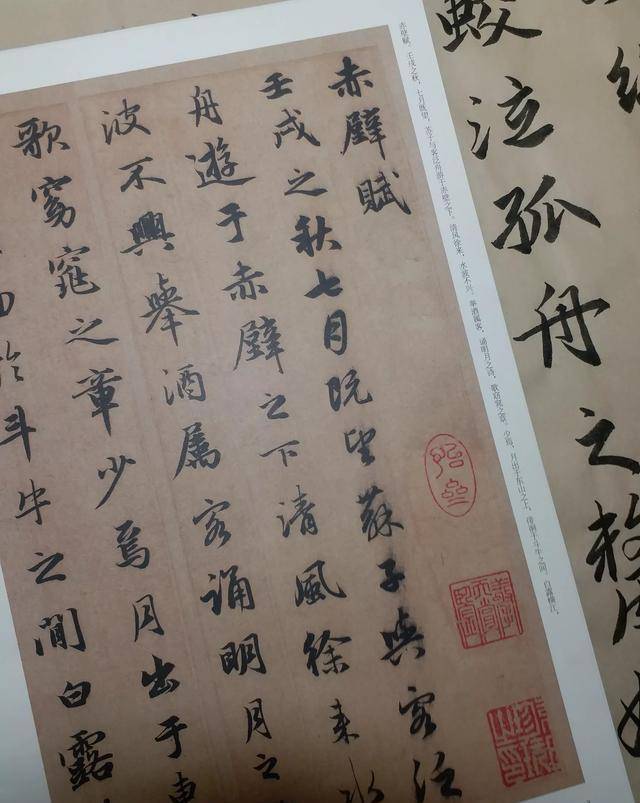 蛟泣孤舟之嫠
赤壁赋。壬戌之秋，七月既望，苏子与客泛舟游于赤壁之下。清风徐来，水波不兴。举酒属客，诵明月之诗，歌窈窕之章。少焉，月出于东山之上，徘徊于斗牛之间。白露横江，
赤壁賦
壬戌之秋七月既望蘇子與客泛
舟遊于赤壁之下清風徐来水
波不興舉酒屬客誦明月之
歌窈窕之章少焉月出于東
於斗牛之間白露